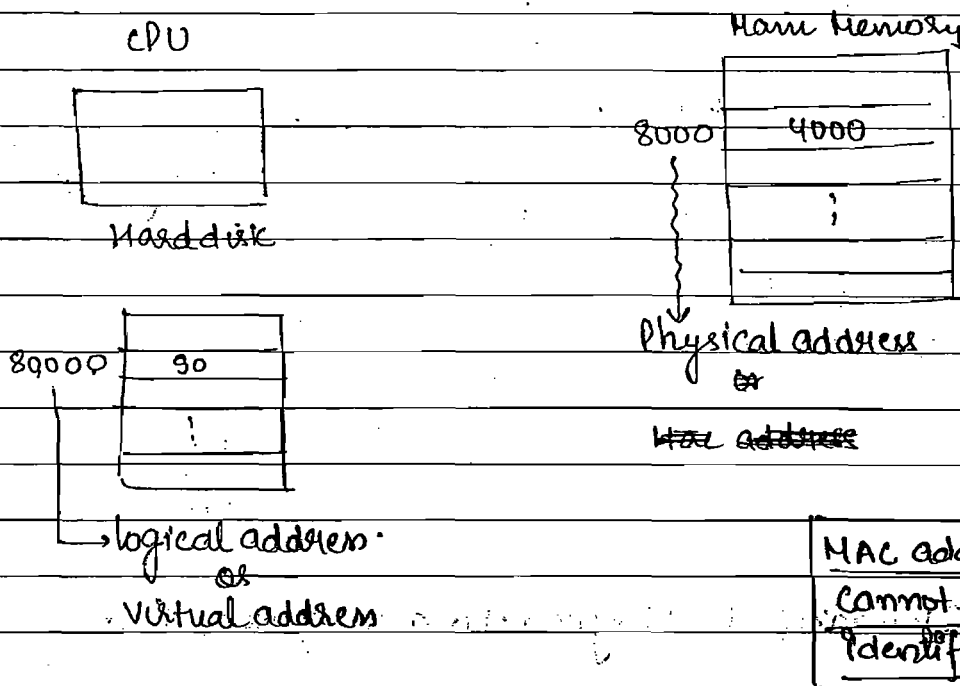 CPU
Main Memory
8000 4000
Harddisk
Physical address
or
89000 90
logical address.
or
Virtual address
MAC add
Cannot
Identif